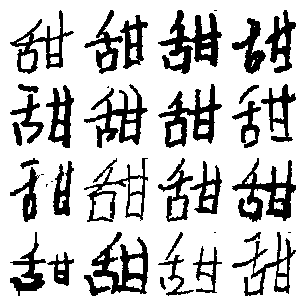 甜甜甜甜
甜甜甜甜
甜甜甜甜
甜甜甜甜